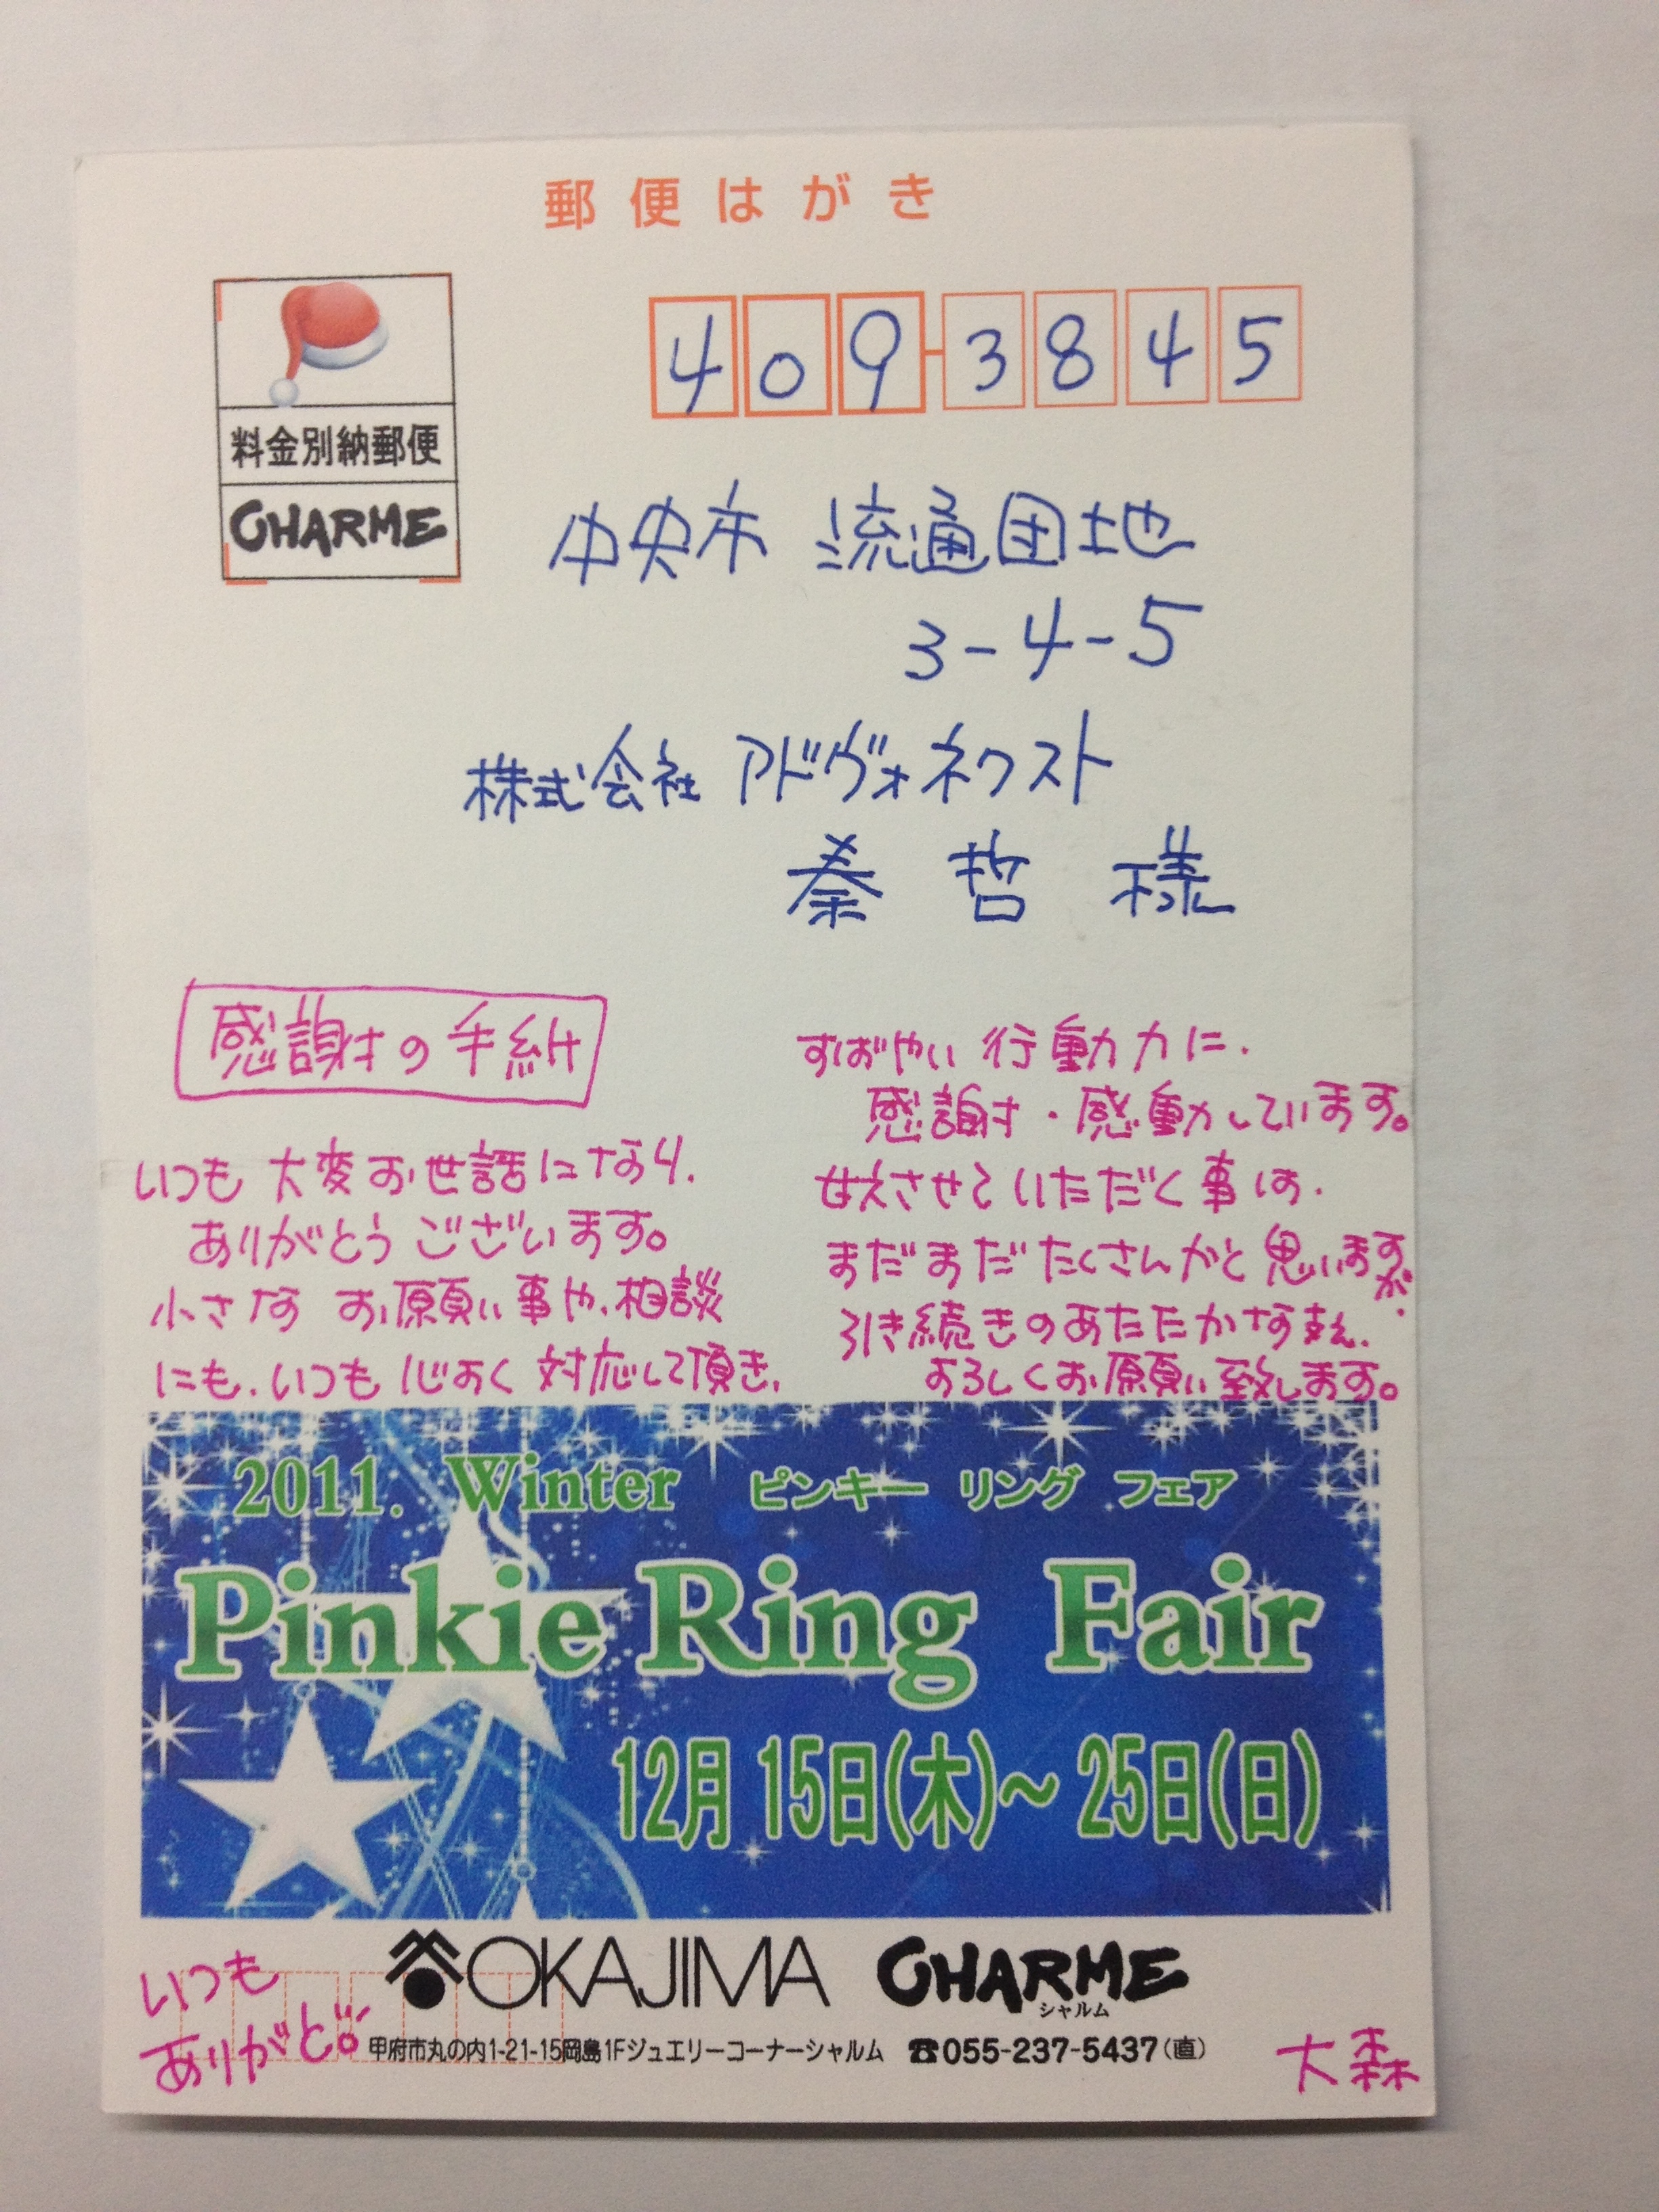 郵便はがき
料金別納郵便
CHARME
409-3845
中央市 流通団地
3-4-5
株式会社 アドヴォネクスト
秦 哲 様
感謝の手紙
いつも 大変お世話になり、
ありがとうございます。
小さな お願い事や、相談
にも、いつも心よく対応して頂き、
すばやい 行動力に、
感謝・感動しています。
甘えさせていただく事は、
まだまだたくさんかと思いますが、
引き続きのあたたかな支え、
よろしくお願い致します。
2011. Winter ピンキー リング フェア
Pinkie Ring Fair
12月 15日(木)～ 25日(日)
OKAJIMA CHARME
シャルム
甲府市丸の内1-21-15岡島1Fジュエリーコーナーシャルム ☎055-237-5437(直)
いつも
ありがと。
大森